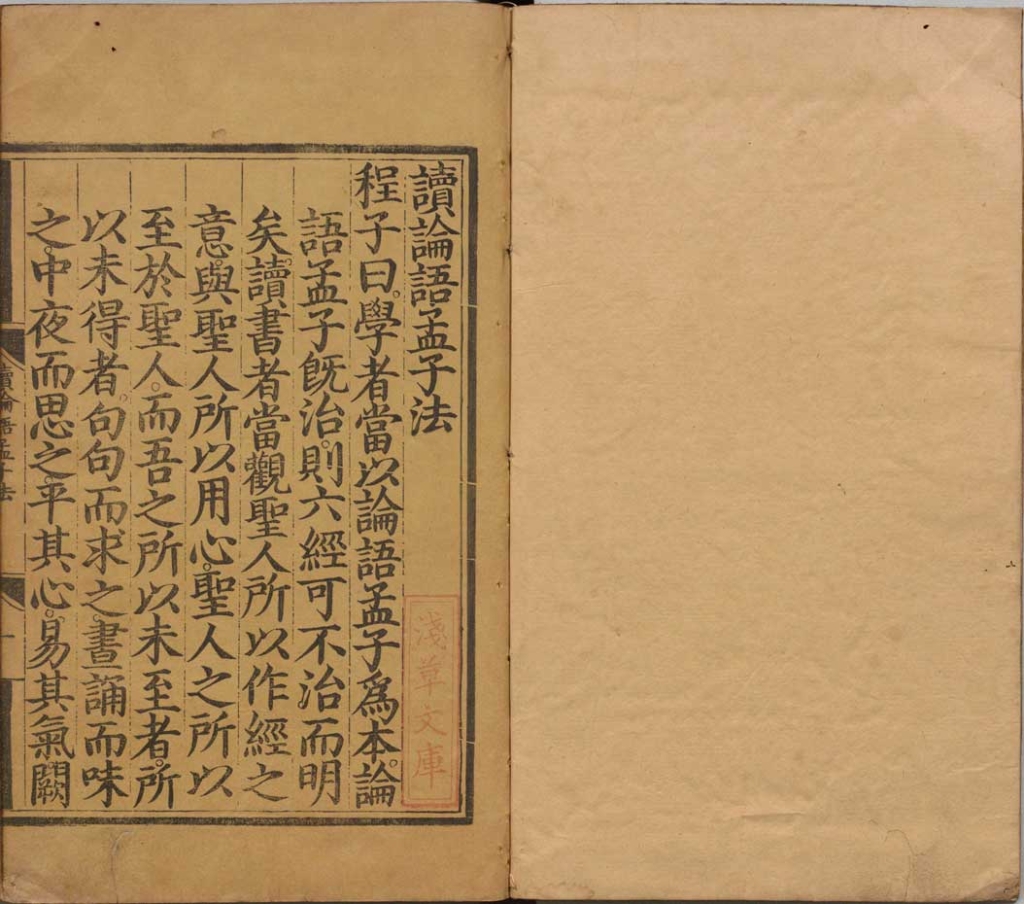 讀論語孟子法
程子曰。學者當以論語孟子爲本。論
語孟子旣治。則六經可不治而明
矣。讀書者當觀聖人所以作經之
意。與聖人所以用心。聖人之所以
至於聖人。而吾之所以未至者。所
以未得者。句句而求之。晝誦而味
之。中夜而思之。平其心。易其氣。闕
讀論語孟子法
一
淺草文庫